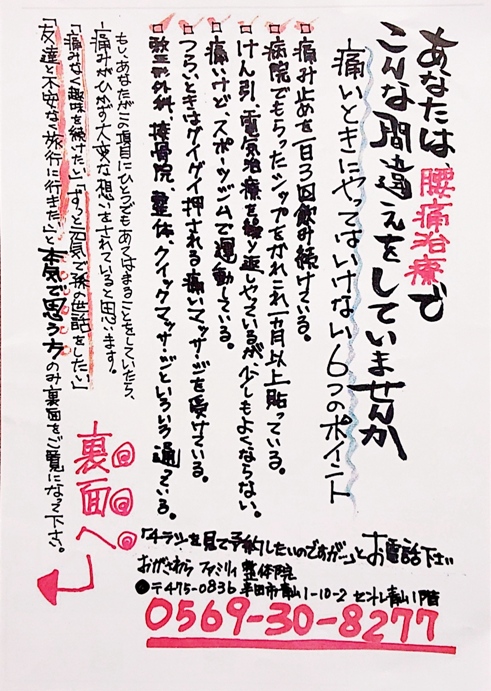 あなたは腰痛治療で
こんな間違えをしていませんか
痛いときにやってはいけない6つのポイント
□痛み止めを一日3回飲み続けている。
□病院でもらったシップをかれこれ1カ月以上貼っている。
□けん引、電気治療を繰り返しやっているが、少しもよくならない。
□痛いけど、スポーツジムで運動している。
□つらいときはグイグイ押される痛いマッサージを受けている。
□整形外科、接骨院、整体、クイックマッサージといろいろ通っている。
もし、あなたがこの項目にひとつでもあてはまることをしていたら、
痛みがひかず大変な想いをされていると思います。
「痛みなく趣味を続けたい」「ずっと元気で孫の世話をしたい」
「友達と不安なく旅行に行きたい」と本気で思う方のみ裏面をご覧になって下さい。
裏面へ
「チラシを見て予約したいのですが…」とお電話下さい
おがさわらファミリィ整体院
●〒475-0836 半田市青山1-10-2 セントレ青山1階
0569-30-8277